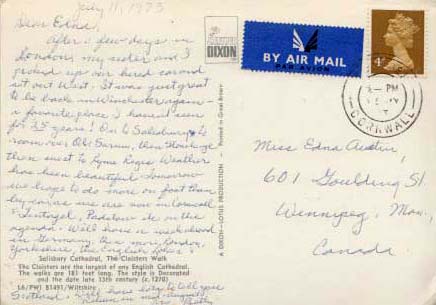 July 11, 1973
Dear Edna,
After a few days in
London, my sister and I
picked up our hired car and
set out West. It was just great
to be back in Winchester again -
a favorite place I haven't seen
for 35 years! On to Salisbury to
roam over Old Sarum, then Stonehenge
then west to Lyme Regis. Weather
has been beautiful. Tomorrow
we hope to do more on foot than
by car as we are now in Cornwall
- Tintagel, Padstow etc on the
agenda. Will have a week-end
in Germany, then more London,
Yorkshire, the English Lakes &
Scotland. Will have lots to tell you
Return in mid-August
Salisbury Cathedral, The Cloisters Walk
The Cloisters are the largest of any English Cathedral.
The walks are 181 feet long. The style is Decorated
and the date late 13th century (c.1270)
L6/(PW) 81491/Wiltshire
A DIXON-LOTUS PRODUCTION - Printed in Great Britain
DIXON
BY AIR MAIL
PAR AVION
4
PM
CORNWALL
Miss Edna Austin,
601 Goulding St.
Winnipeg, Man.,
Canada